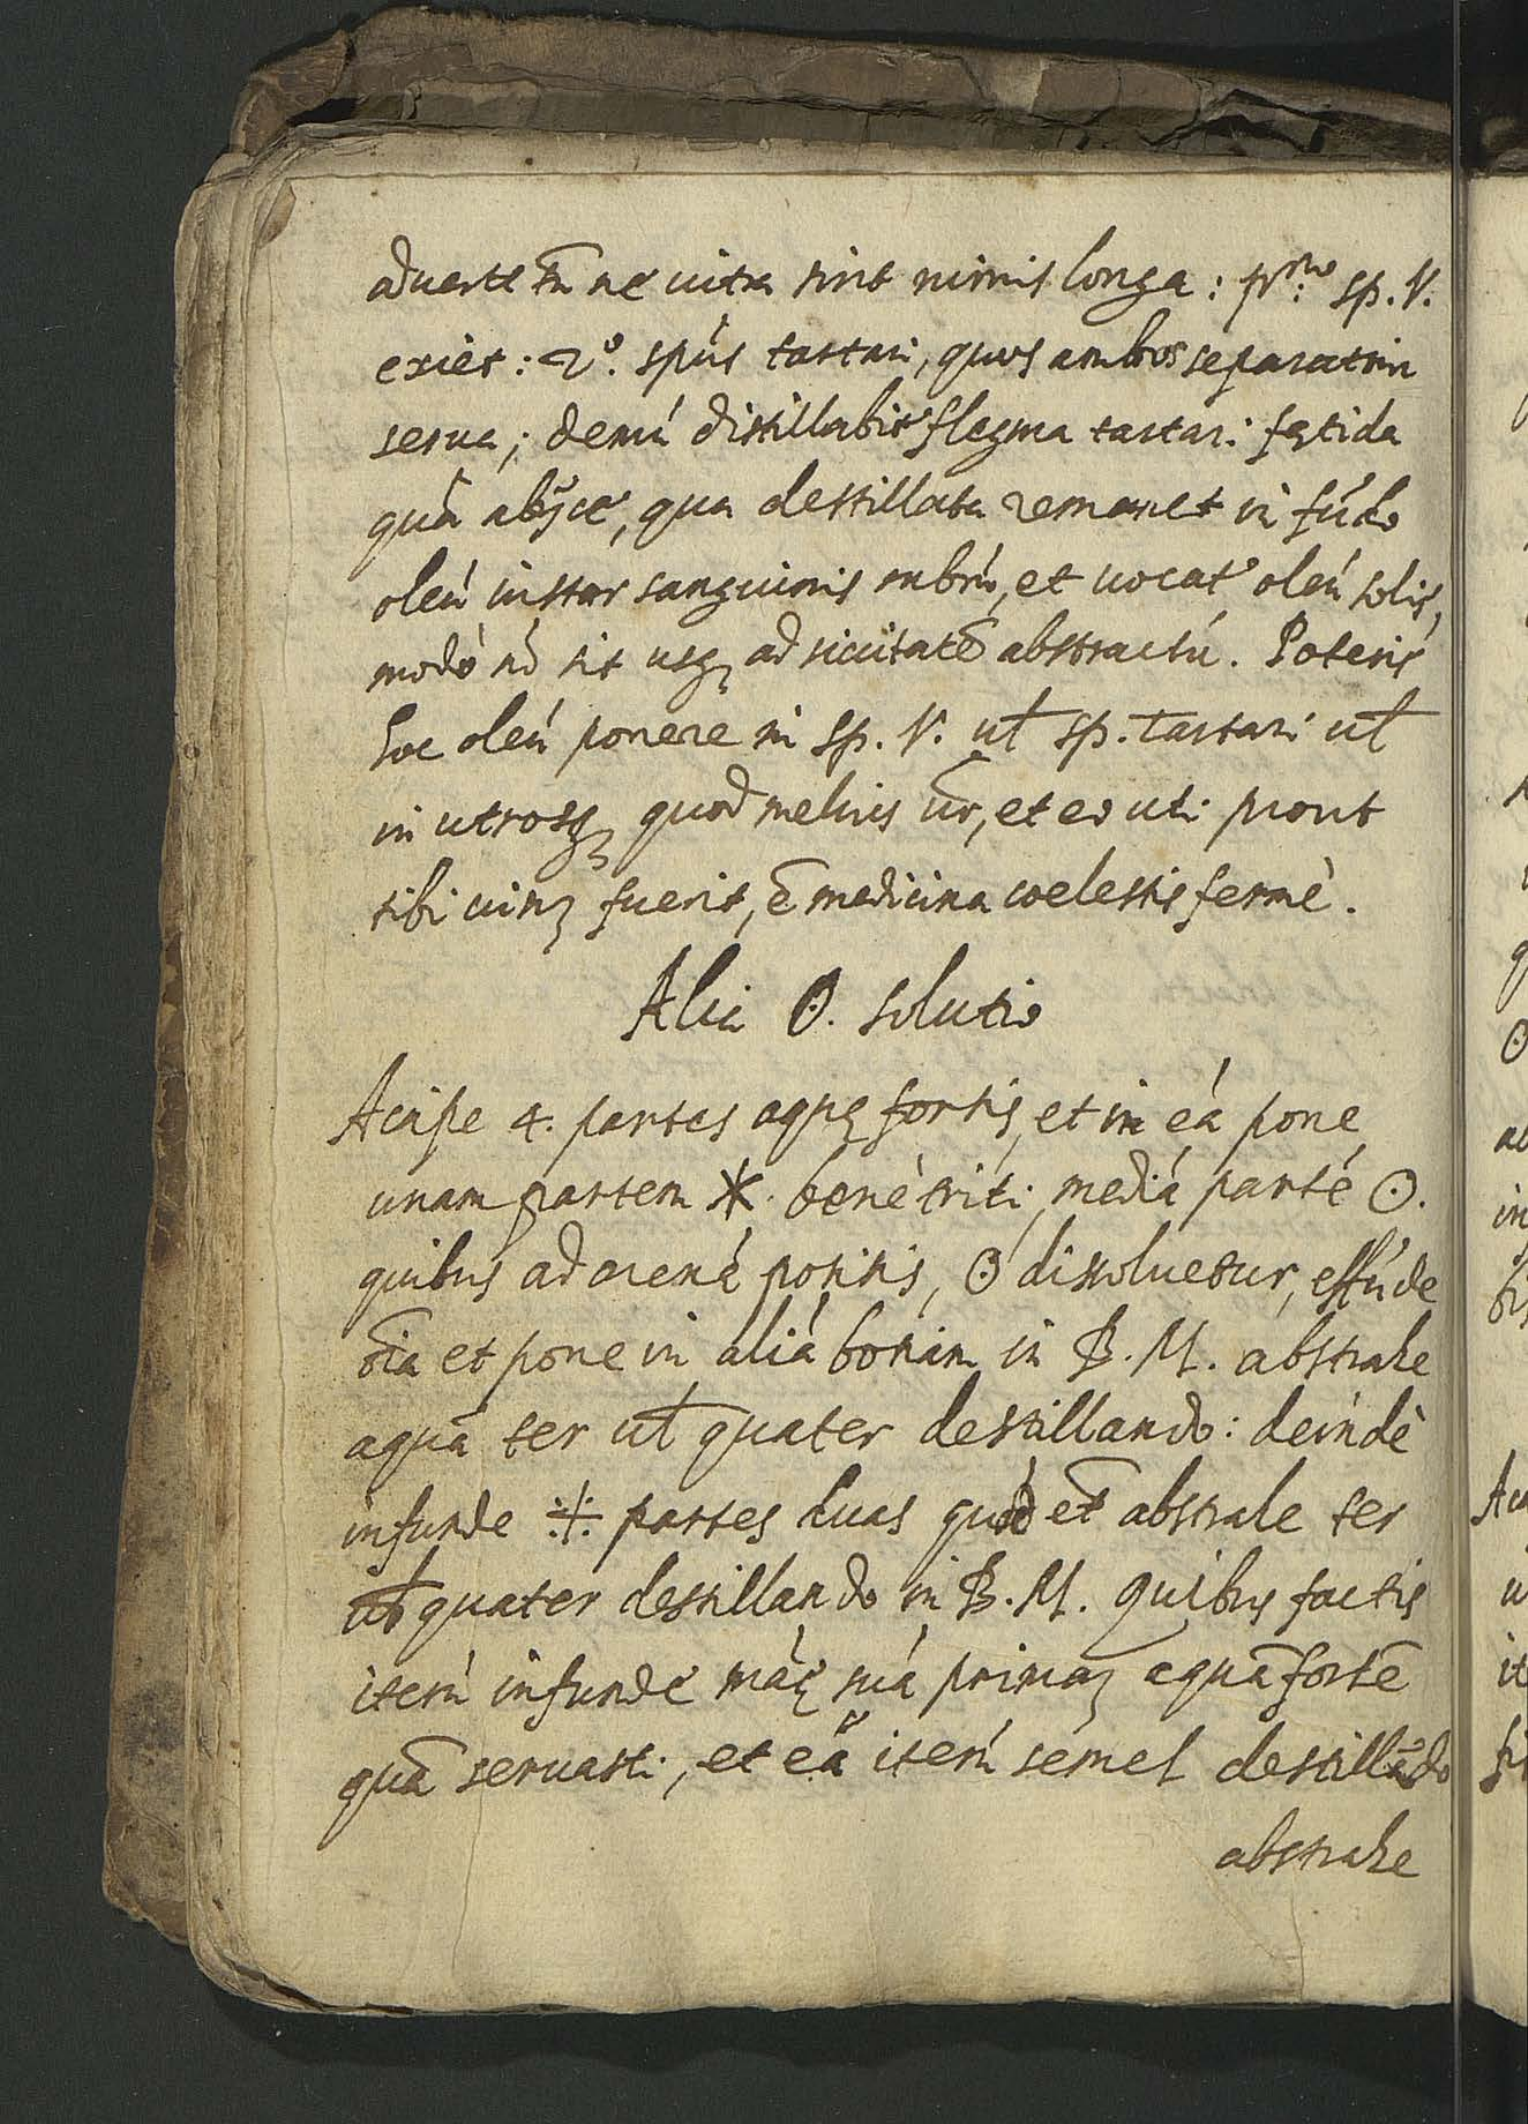 aduerte tñ ne uitra sint nimis longa: prº: sp. V.
exiet: 2º. spũs tartari, quos ambos separatim
serua; demú distillabit flegma tartari fętida
quã abÿce, qua destillata remanet in fúdo
oleú instar sanguinis rubrú, et uocat' oleú solis,
modò nõ sit usq; ad siccitatẽ abstractú. Poteris
hoc oleú ponere in sp. V. ul̃ sp. tartari ul̃
in utrosq; quod melius ũr, et eo uti prout
tibi uisuz fuerit, ẽ medicina coelestis fermè.
Alia ☉. solutio
Accipe 4. partes aquę fortis, et in eá pone
unam partem ✶. benè triti, mediá parté ☉.
quibus ad arená positis, ☉ dissoluetur, effúde
oĩa et pone in aliá bociam in B. M. abstrahe
aquã ter ul̃ quater destillando: deindè
infunde ·/. partes duas quod et̃ abstrahe ter
ul̃ quater destillando in B. M. quibus factis
iterú infunde máę suá primaz aquã fortẽ
quã seruasti, et eã iterú semel destillãdo
abstrahe